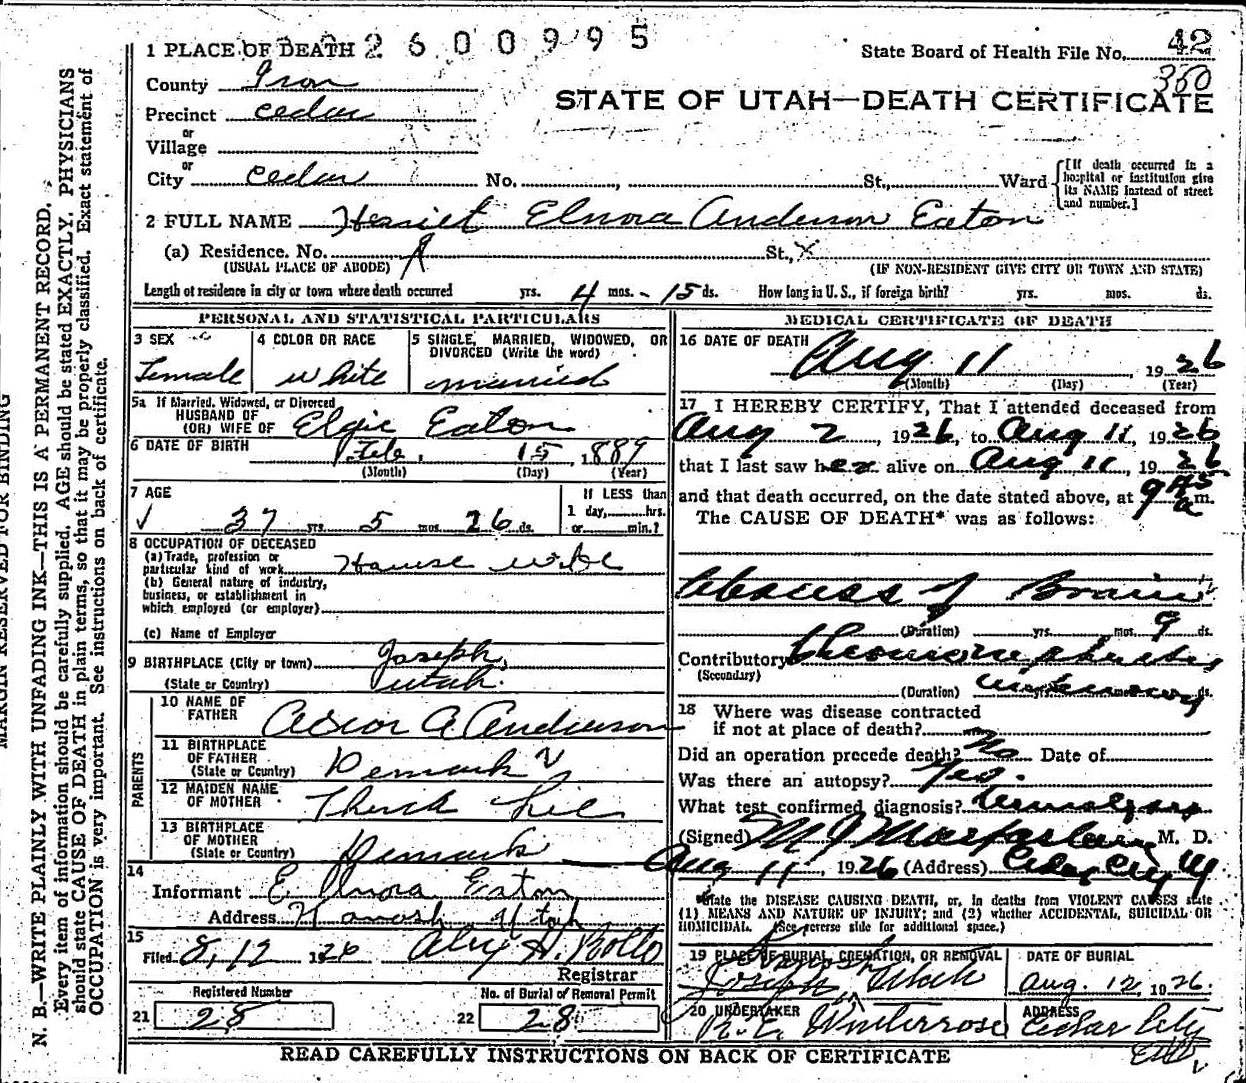 1 PLACE OF DEATH 2 6 0 0 9 9 5
State Board of Health File No. 42
350
County Iron
STATE OF UTAH—DEATH CERTIFICATE
Precinct Cedar
or
Village
or
City Cedar No. , St., Ward
[If death occurred in a hospital or institution give its NAME instead of street and number.]
2 FULL NAME Harriet Elnora Anderson Eaton
(a) Residence. No. St., X
(USUAL PLACE OF ABODE) (IF NON-RESIDENT GIVE CITY OR TOWN AND STATE)
Length of residence in city or town where death occurred yrs. 4 mos. - 15 ds. How long in U. S., if foreign birth? yrs. mos. ds.
PERSONAL AND STATISTICAL PARTICULARS
3 SEX
Female
4 COLOR OR RACE
White
5 SINGLE, MARRIED, WIDOWED, OR DIVORCED (Write the word)
married
5a If Married, Widowed, or Divorced
HUSBAND OF
(OR) WIFE OF Elgie Eaton
6 DATE OF BIRTH Feb. 15, 1889
(Month) (Day) (Year)
7 AGE
37 yrs. 5 mos. 26 ds.
If LESS than
1 day, hrs.
or min.?
8 OCCUPATION OF DECEASED
(a) Trade, profession or
particular kind of work House wife
(b) General nature of industry,
business, or establishment in
which employed (or employer)
(c) Name of Employer
9 BIRTHPLACE (City or town) Joseph,
(State or Country) Utah.
PARENTS
10 NAME OF
FATHER A Anderson
11 BIRTHPLACE
OF FATHER
(State or Country) Demark
12 MAIDEN NAME
OF MOTHER
13 BIRTHPLACE
OF MOTHER
(State or Country) Demark
14
Informant E Elnora Eaton
Address Kanosh Utah
15
Filed 8, 12 1926 Alex H. Rollo
Registrar
Registered Number
21 28
No. of Burial or Removal Permit
22 28
MEDICAL CERTIFICATE OF DEATH
16 DATE OF DEATH Aug 11, 1926
(Month) (Day) (Year)
17 I HEREBY CERTIFY, That I attended deceased from
Aug 2, 1926, to Aug 11, 1926
that I last saw her alive on Aug 11, 1926
and that death occurred, on the date stated above, at 9 45 a m.
The CAUSE OF DEATH* was as follows:
Abscess of Brain
(Duration) yrs. mos. 9 ds.
Contributory Chronic nephritis
(Secondary)
(Duration) unknown ds.
18 Where was disease contracted
if not at place of death?
Did an operation precede death? No Date of
Was there an autopsy? Yes.
What test confirmed diagnosis?
(Signed) M J Macfarlane, M. D.
Aug 11, 1926 (Address) Cedar City Ut
*State the DISEASE CAUSING DEATH, or, in deaths from VIOLENT CAUSES state
(1) MEANS AND NATURE OF INJURY; and (2) whether ACCIDENTAL, SUICIDAL OR
HOMICIDAL. (See reverse side for additional space.)
19 PLACE OF BURIAL, CREMATION, OR REMOVAL
Kanosh
Joseph, Utah
DATE OF BURIAL
Aug. 12, 1926.
20 UNDERTAKER
R. E. Winterrose
ADDRESS
Cedar City
READ CAREFULLY INSTRUCTIONS ON BACK OF CERTIFICATE
MARGIN RESERVED FOR BINDING
N. B.—WRITE PLAINLY WITH UNFADING INK—THIS IS A PERMANENT RECORD.
Every item of information should be carefully supplied. AGE should be stated EXACTLY. PHYSICIANS
should state CAUSE OF DEATH in plain terms, so that it may be properly classified. Exact statement of
OCCUPATION is very important. See instructions on back of certificate.